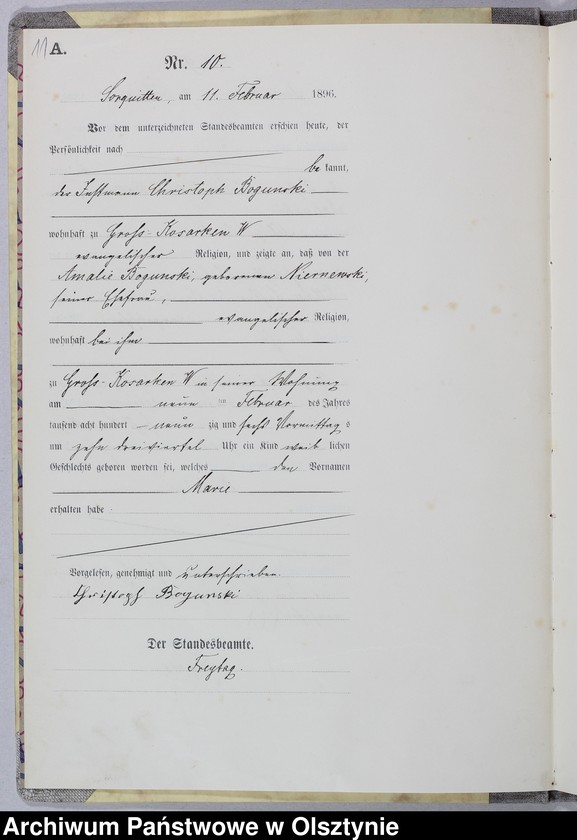 11 A.
Nr. 10.
Sorquitten, am 11. Februar 1896.
Vor dem unterzeichneten Standesbeamten erschien heute, der
Persönlichkeit nach
bekannt,
der Instmann Christoph Bogunski
wohnhaft zu Gross-Kosarken W
evangelischer Religion, und zeigte an, daß von der
Amalie Bogunski, geborenen Niernewski,
seiner Ehefrau,
evangelischer Religion,
wohnhaft bei ihm
zu Gross-Kosarken W in seiner Wohnung
am neun ten Februar des Jahres
tausend acht hundert neun zig und sechs Vormittags
um zehn dreiviertel Uhr ein Kind weiblichen
Geschlechts geboren worden sei, welches den Vornamen
Marie
erhalten habe
Vorgelesen, genehmigt und unterschrieben.
Christoph Bogunski
Der Standesbeamte.
Freytag.
Archiwum Państwowe w Olsztynie